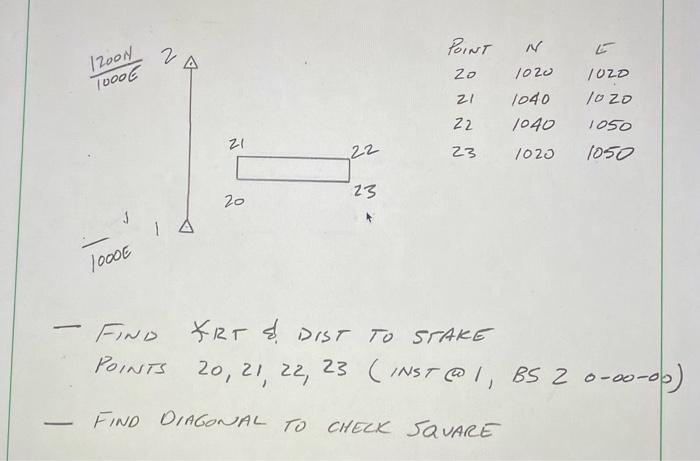 1200N
1000E
2
POINT N E
20 1020 1020
21 1040 1020
22 1040 1050
23 1020 1050
21
22
20
23
1
1000E
— FIND ∡RT & DIST TO STAKE
POINTS 20, 21, 22, 23 (INST @ 1, BS 2 0-00-00)
— FIND DIAGONAL TO CHECK SQUARE